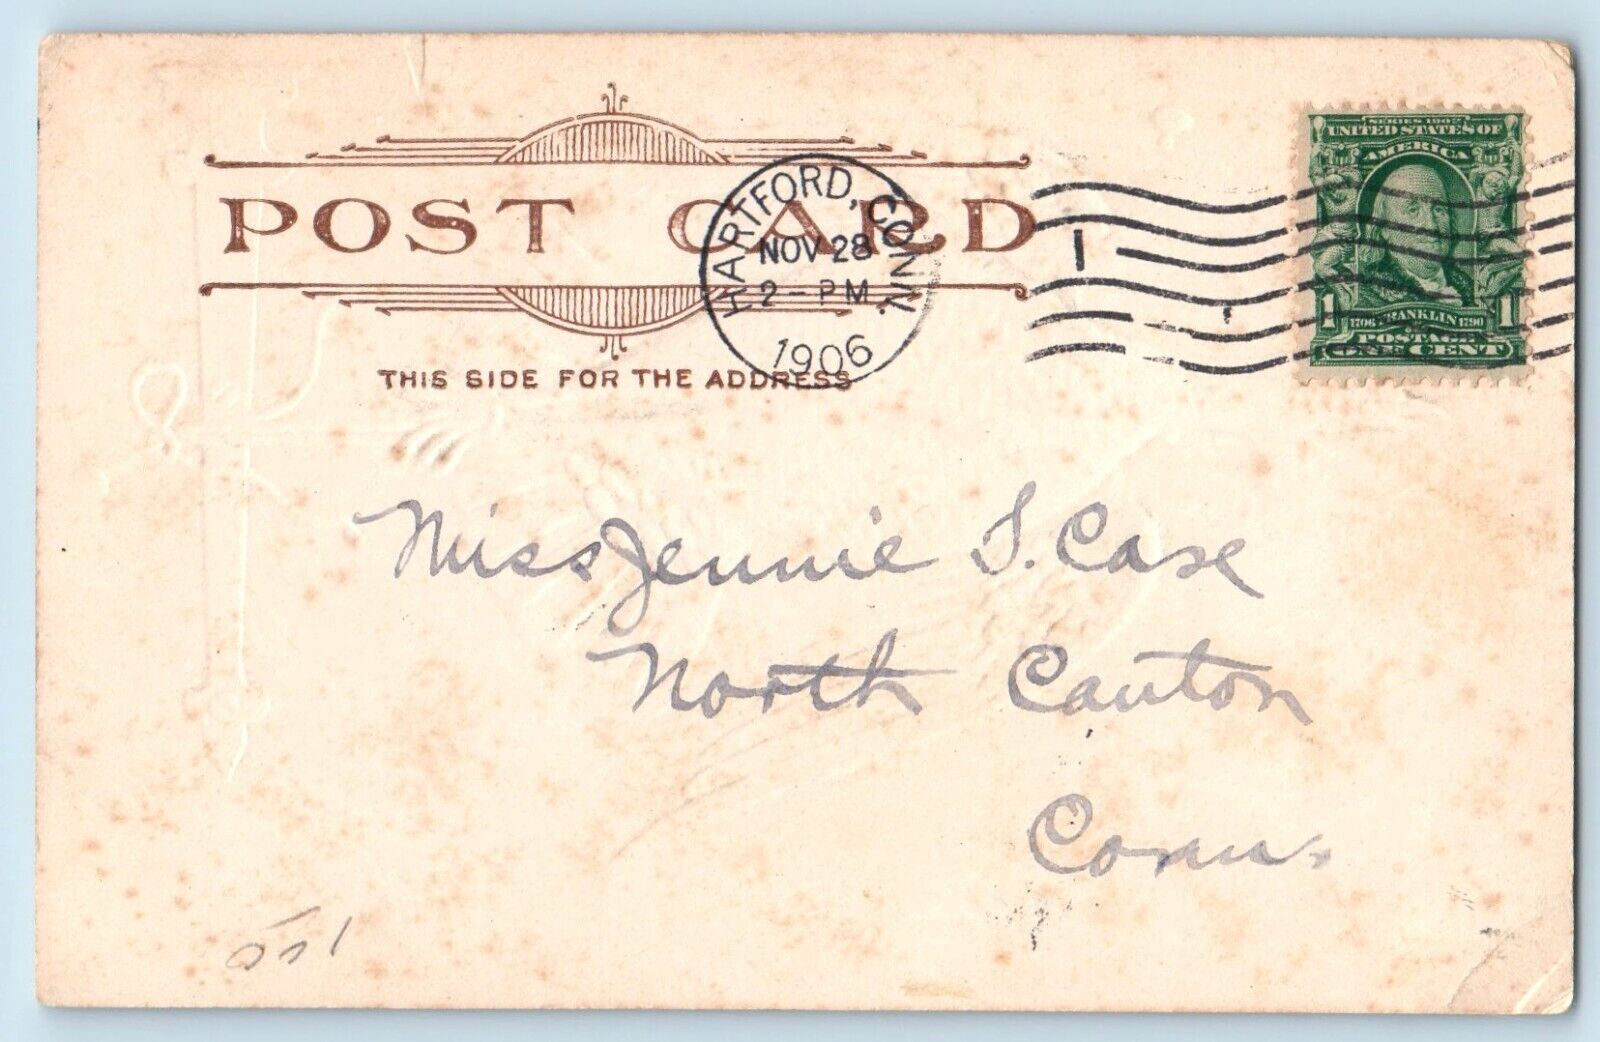 POST CARD
THIS SIDE FOR THE ADDRESS
HARTFORD, CONN.
NOV 28
2 - PM
1906
SERIES 1902
UNITED STATES OF
AMERICA
1 1706 FRANKLIN 1790 1
POSTAGE
ONE CENT
Miss Jennie S. Case
North Canton
Conn.